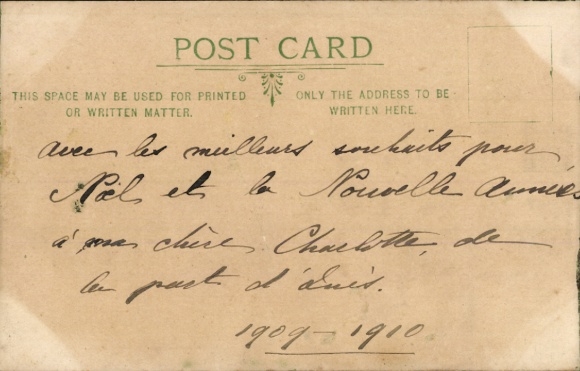 POST CARD
THIS SPACE MAY BE USED FOR PRINTED
OR WRITTEN MATTER.
ONLY THE ADDRESS TO BE
WRITTEN HERE.
avec les meilleurs souhaits pour
Noël et la Nouvelle Année
à ma chère Charlotte, de
la part d'
1909-1910